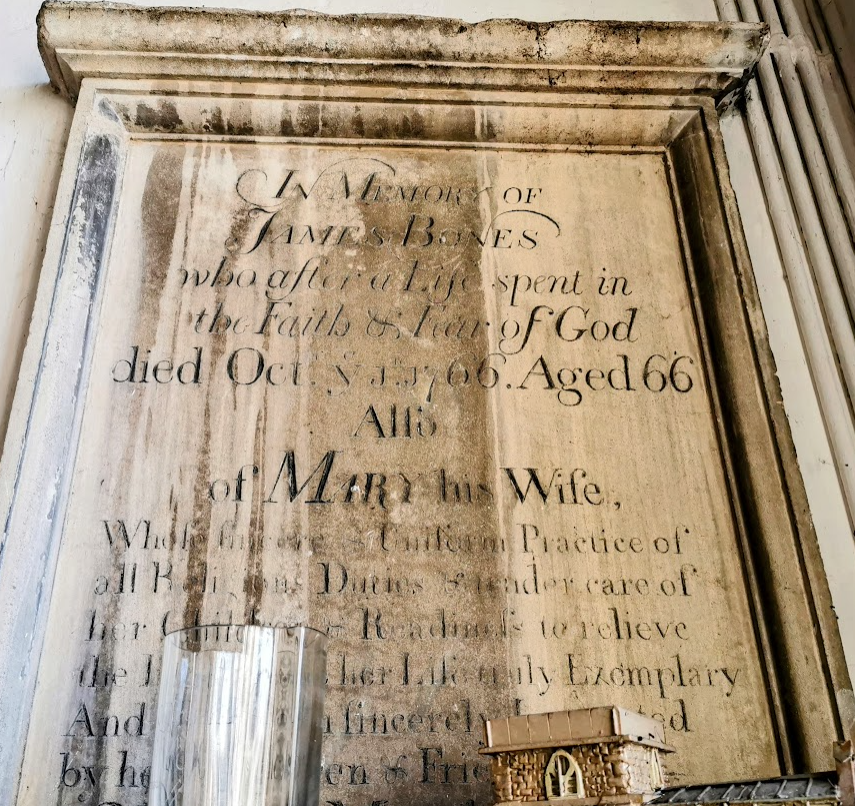 IN MEMORY OF
JAMES BONES
who after a Life spent in
the Faith & Fear of God
died Oct. yͤ 1766. Aged 66
Allſo
of MARY his Wife,
Whoſe ſincere & Uniform Practice of
all Religious Duties & tender care of
her Children & Readineſs to relieve
the her Life truly Exemplary
And ſincerely
by en & Frie